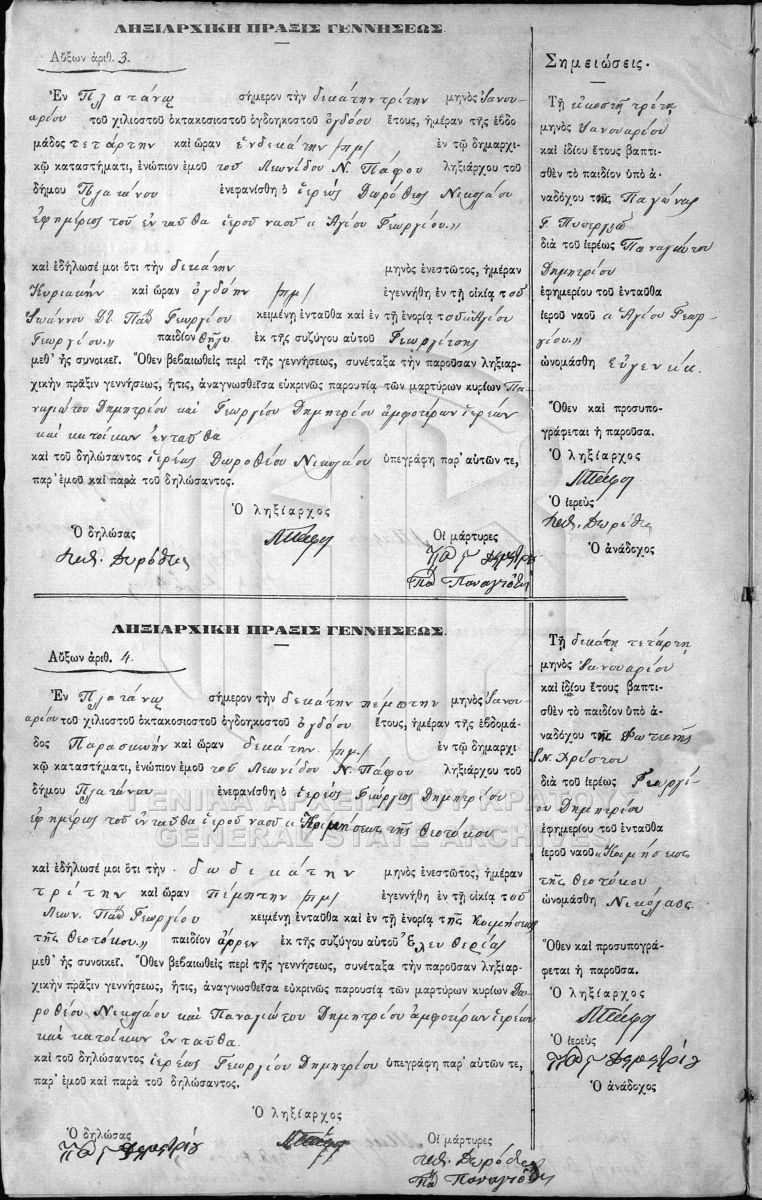 ΛΗΞΙΑΡΧΙΚΗ ΠΡΑΞΙΣ ΓΕΝΝΗΣΕΩΣ.
Αὔξων ἀριθ. 3.
Ἐν Πλατάνῳ σήμερον τὴν δεκάτην τρίτην μηνὸς Ἰανου-
αρίου τοῦ χιλιοστοῦ ὀκτακοσιοστοῦ ὀγδοηκοστοῦ ὀγδόου ἔτους, ἡμέραν τῆς ἑβδο-
μάδος τετάρτην καὶ ὥραν ἑνδεκάτην /πμ/ ἐν τῷ δημαρχι-
κῷ καταστήματι, ἐνώπιον ἐμοῦ τοῦ Λεωνίδου Ν. Πάφου ληξιάρχου τοῦ
δήμου Πλατάνου ἐνεφανίσθη ὁ ἱερεὺς Δωρόθεος Νικολάου
ἐφημέριος τοῦ ἐνταῦθα ἱεροῦ ναοῦ «Ἁγίου Γεωργίου.»
καὶ ἐδήλωσέ μοι ὅτι τὴν δεκάτην μηνὸς ἐνεστῶτος, ἡμέραν
Κυριακὴν καὶ ὥραν ὀγδόην /πμ/ ἐγεννήθη ἐν τῇ οἰκίᾳ τοῦ
Ἰωάννου Παπᾶ Γεωργίου κειμένῃ ἐνταῦθα καὶ ἐν τῇ ἐνορίᾳ τοῦ «Ἁγίου
Γεωργίου.» παιδίον θῆλυ ἐκ τῆς συζύγου αὐτοῦ Γεωργίτσης
μεθ' ἧς συνοικεῖ. Ὅθεν βεβαιωθεὶς περὶ τῆς γεννήσεως, συνέταξα τὴν παροῦσαν ληξιαρ-
χικὴν πρᾶξιν γεννήσεως, ἥτις, ἀναγνωσθεῖσα εὐκρινῶς παρουσίᾳ τῶν μαρτύρων κυρίων Πα-
ναγιώτου Δημητρίου καὶ Γεωργίου Δημητρίου ἀμφοτέρων ἱερέων
καὶ κατοίκων ἐνταῦθα
καὶ τοῦ δηλώσαντος ἱερέως Δωροθέου Νικολάου ὑπεγράφη παρ' αὐτῶν τε,
παρ' ἐμοῦ καὶ παρὰ τοῦ δηλώσαντος.
Ὁ ληξίαρχος
Ὁ δηλώσας
Οἱ μάρτυρες
Σημειώσεις.
Τῇ εἰκοστῇ τρίτῃ
μηνὸς Ἰανουαρίου
καὶ ἰδίου ἔτους βαπτι-
σθὲν τὸ παιδίον ὑπὸ ἀ-
ναδόχου τῆς Παγώνας
Γ.
διὰ τοῦ ἱερέως Παναγιώτου
Δημητρίου
ἐφημερίου τοῦ ἐνταῦθα
ἱεροῦ ναοῦ «Ἁγίου Γεωρ-
γίου.»
ὠνομάσθη Εὐγενικὴ.
Ὅθεν καὶ προσυπο-
γράφεται ἡ παροῦσα.
Ὁ ληξίαρχος
Ὁ ἱερεὺς
Ὁ ἀνάδοχος
ΛΗΞΙΑΡΧΙΚΗ ΠΡΑΞΙΣ ΓΕΝΝΗΣΕΩΣ.
Αὔξων ἀριθ. 4.
Ἐν Πλατάνῳ σήμερον τὴν δεκάτην πέμπτην μηνὸς Ἰανου-
αρίου τοῦ χιλιοστοῦ ὀκτακοσιοστοῦ ὀγδοηκοστοῦ ὀγδόου ἔτους, ἡμέραν τῆς ἑβδομά-
δος Παρασκευὴν καὶ ὥραν δεκάτην /πμ/ ἐν τῷ δημαρχι-
κῷ καταστήματι, ἐνώπιον ἐμοῦ τοῦ Λεωνίδου Ν. Πάφου ληξιάρχου τοῦ
δήμου Πλατάνου ἐνεφανίσθη ὁ ἱερεὺς Γεώργιος Δημητρίου
ἐφημέριος τοῦ ἐνταῦθα ἱεροῦ ναοῦ «Κοιμήσεως τῆς Θεοτόκου
ΓΕΝΙΚΑ ΑΡΧΕΙΑ ΤΟΥ ΚΡΑΤΟΥΣ
GENERAL STATE ARCHIVES
καὶ ἐδήλωσέ μοι ὅτι τὴν δωδεκάτην μηνὸς ἐνεστῶτος, ἡμέραν
τρίτην καὶ ὥραν πέμπτην /πμ/ ἐγεννήθη ἐν τῇ οἰκίᾳ τοῦ
Λεων. Παπᾶ Γεωργίου κειμένῃ ἐνταῦθα καὶ ἐν τῇ ἐνορίᾳ τῆς Κοιμήσεως
τῆς Θεοτόκου.» παιδίον ἄρρεν ἐκ τῆς συζύγου αὐτοῦ Ἐλευθερίας
μεθ' ἧς συνοικεῖ. Ὅθεν βεβαιωθεὶς περὶ τῆς γεννήσεως, συνέταξα τὴν παροῦσαν ληξιαρ-
χικὴν πρᾶξιν γεννήσεως, ἥτις, ἀναγνωσθεῖσα εὐκρινῶς παρουσίᾳ τῶν μαρτύρων κυρίων Δω-
ροθέου Νικολάου καὶ Παναγιώτου Δημητρίου ἀμφοτέρων ἱερέων
καὶ κατοίκων ἐνταῦθα.
καὶ τοῦ δηλώσαντος ἱερέως Γεωργίου Δημητρίου ὑπεγράφη παρ' αὐτῶν τε,
παρ' ἐμοῦ καὶ παρὰ τοῦ δηλώσαντος.
Ὁ ληξίαρχος
Ὁ δηλώσας
Οἱ μάρτυρες
Τῇ δεκάτῃ τετάρτῃ
μηνὸς Ἰανουαρίου
καὶ ἰδίου ἔτους βαπτι-
σθὲν τὸ παιδίον ὑπὸ ἀ-
ναδόχου τῆς Φωτεινῆς
Ν. Χρίστου
διὰ τοῦ ἱερέως Γεωργί-
ου Δημητρίου
ἐφημερίου τοῦ ἐνταῦθα
ἱεροῦ ναοῦ «Κοιμήσεως
τῆς Θεοτόκου
ὠνομάσθη Νικόλαος.
Ὅθεν καὶ προσυπογρά-
φεται ἡ παροῦσα.
Ὁ ληξίαρχος
Ὁ ἱερεὺς
Ὁ ἀνάδοχος